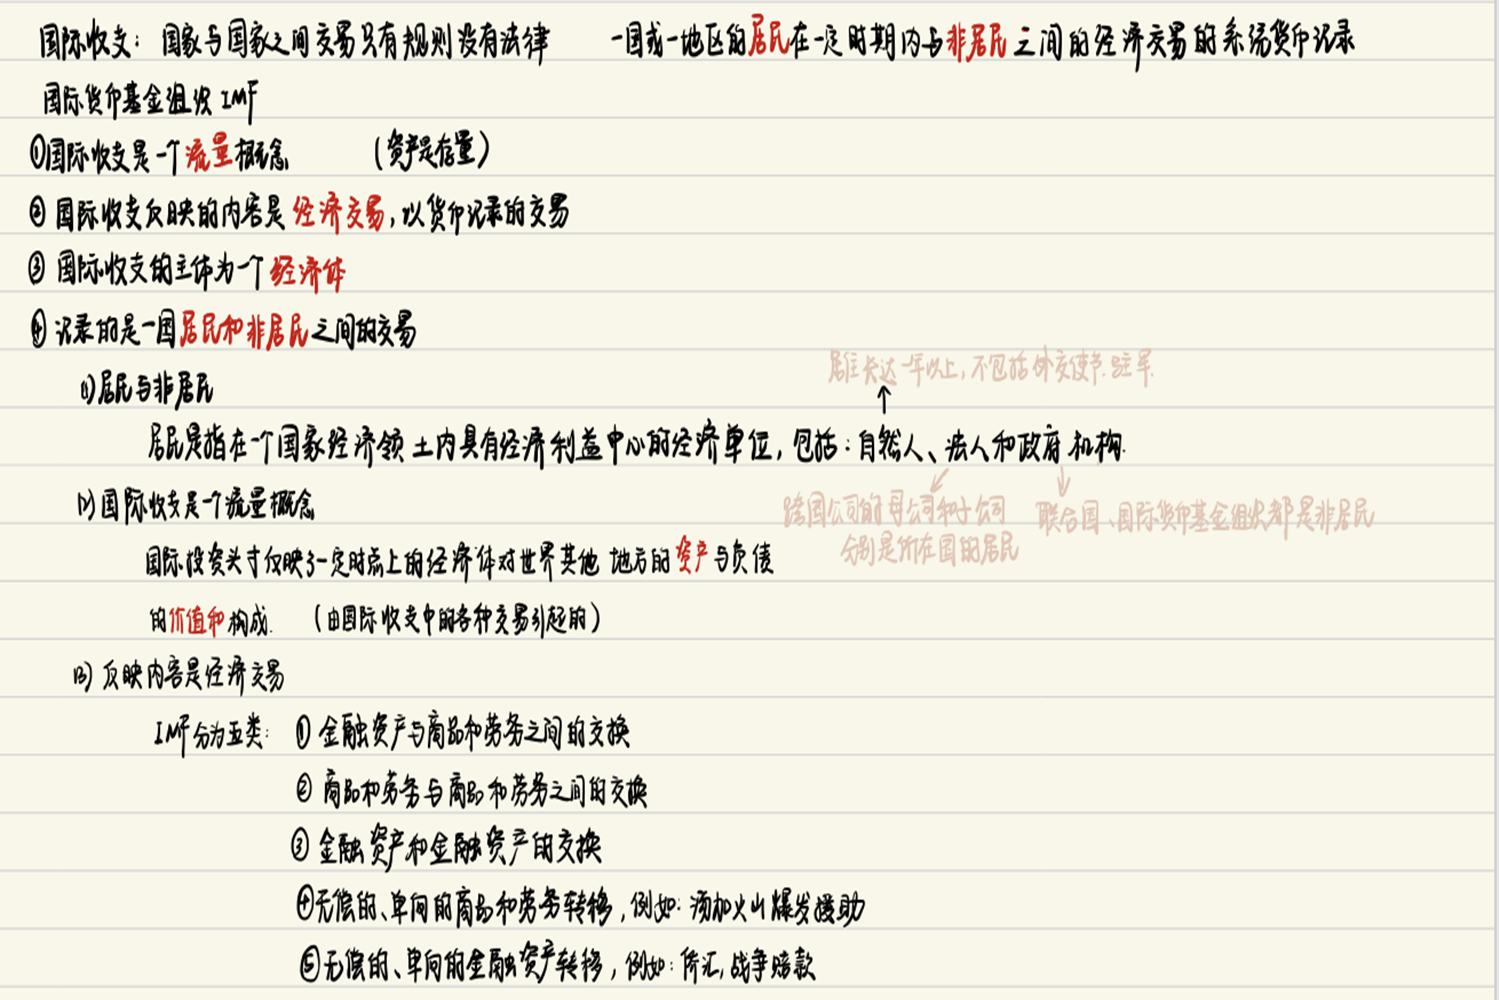 国际收支：国家与国家之间交易只有规则没有法律 一国或一地区的居民在一定时期内与非居民之间的经济交易的系统货币记录
国际货币基金组织 IMF
①国际收支是一个流量概念 (资产是存量)
② 国际收支反映的内容是经济交易,以货币记录的交易
③ 国际收支的主体为一个经济体
④ 记录的是一国居民和非居民之间的交易
居住长达一年以上,不包括外交使节.驻军.
(1)居民与非居民
居民是指在一个国家经济领土内具有经济利益中心的经济单位,包括:自然人、法人和政府机构.
(2)国际收支是一个流量概念
跨国公司的母公司和子公司 联合国、国际货币基金组织都是非居民
分别是所在国的居民
国际投资头寸反映了一定时点上的经济体对世界其他地方的资产与负债
的价值和构成. (由国际收支中的各种交易引起的)
(3) 反映内容是经济交易
IMF分为五类: ① 金融资产与商品和劳务之间的交换
② 商品和劳务与商品和劳务之间的交换
③ 金融资产和金融资产的交换
④无偿的、单向的商品和劳务转移,例如:汤加火山爆发援助
⑤无偿的、单向的金融资产转移,例如:侨汇,战争赔款